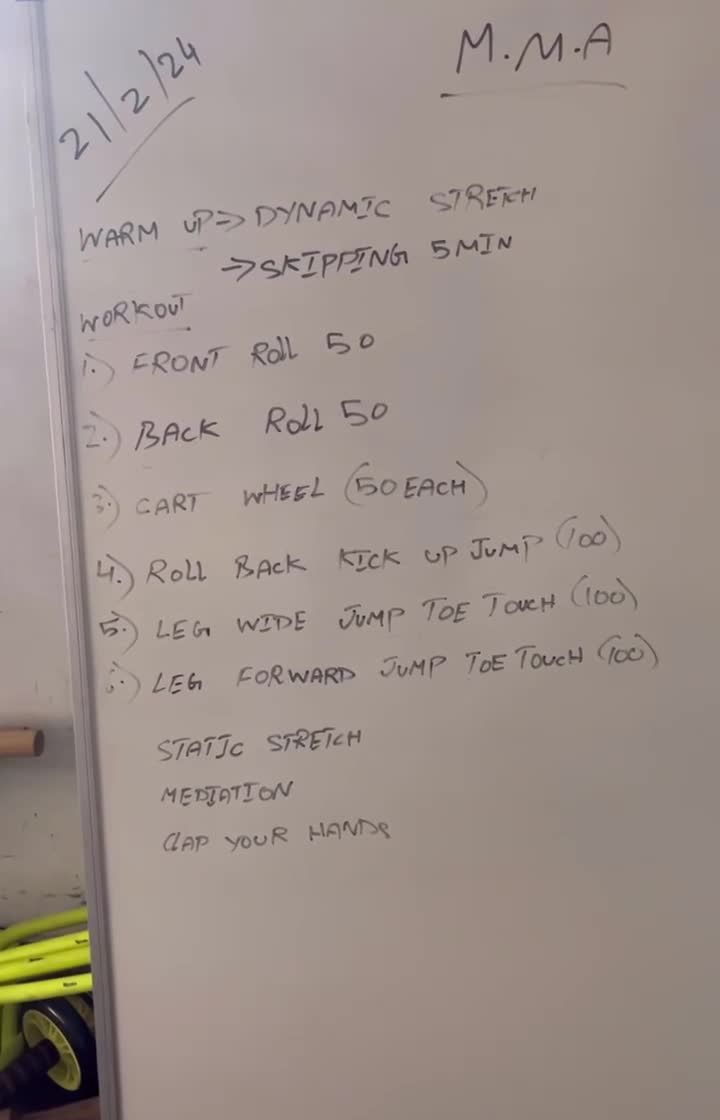 21/2/24
M.M.A
WARM UP => DYNAMIC STRETCH
→ SKIPPING 5 MIN
WORKOUT
1.) FRONT ROLL 50
2.) BACK ROLL 50
3.) CART WHEEL (50 EACH)
4.) ROLL BACK KICK UP JUMP (100)
5.) LEG WIDE JUMP TOE TOUCH (100)
6.) LEG FORWARD JUMP TOE TOUCH (100)
STATIC STRETCH
MEDIATION
CLAP YOUR HANDS